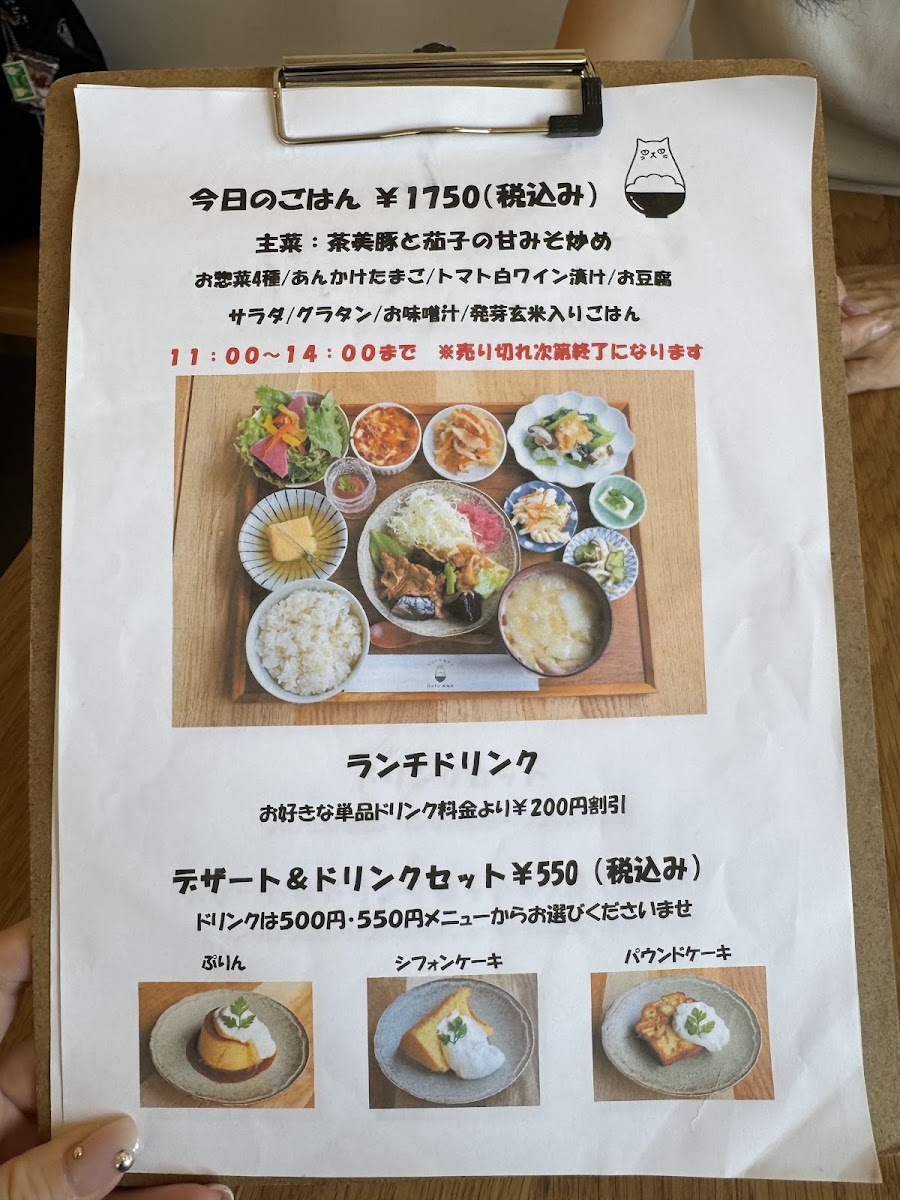 今日のごはん ¥1750(税込み)
主菜：茶美豚と茄子の甘みそ炒め
お惣菜4種/あんかけたまご/トマト白ワイン漬け/お豆腐
サラダ/グラタン/お味噌汁/発芽玄米入りごはん
11：00～14：00まで ※売り切れ次第終了になります
ランチドリンク
お好きな単品ドリンク料金より¥200円割引
デザート＆ドリンクセット¥550（税込み）
ドリンクは500円・550円メニューからお選びくださいませ
ぷりん シフォンケーキ パウンドケーキ